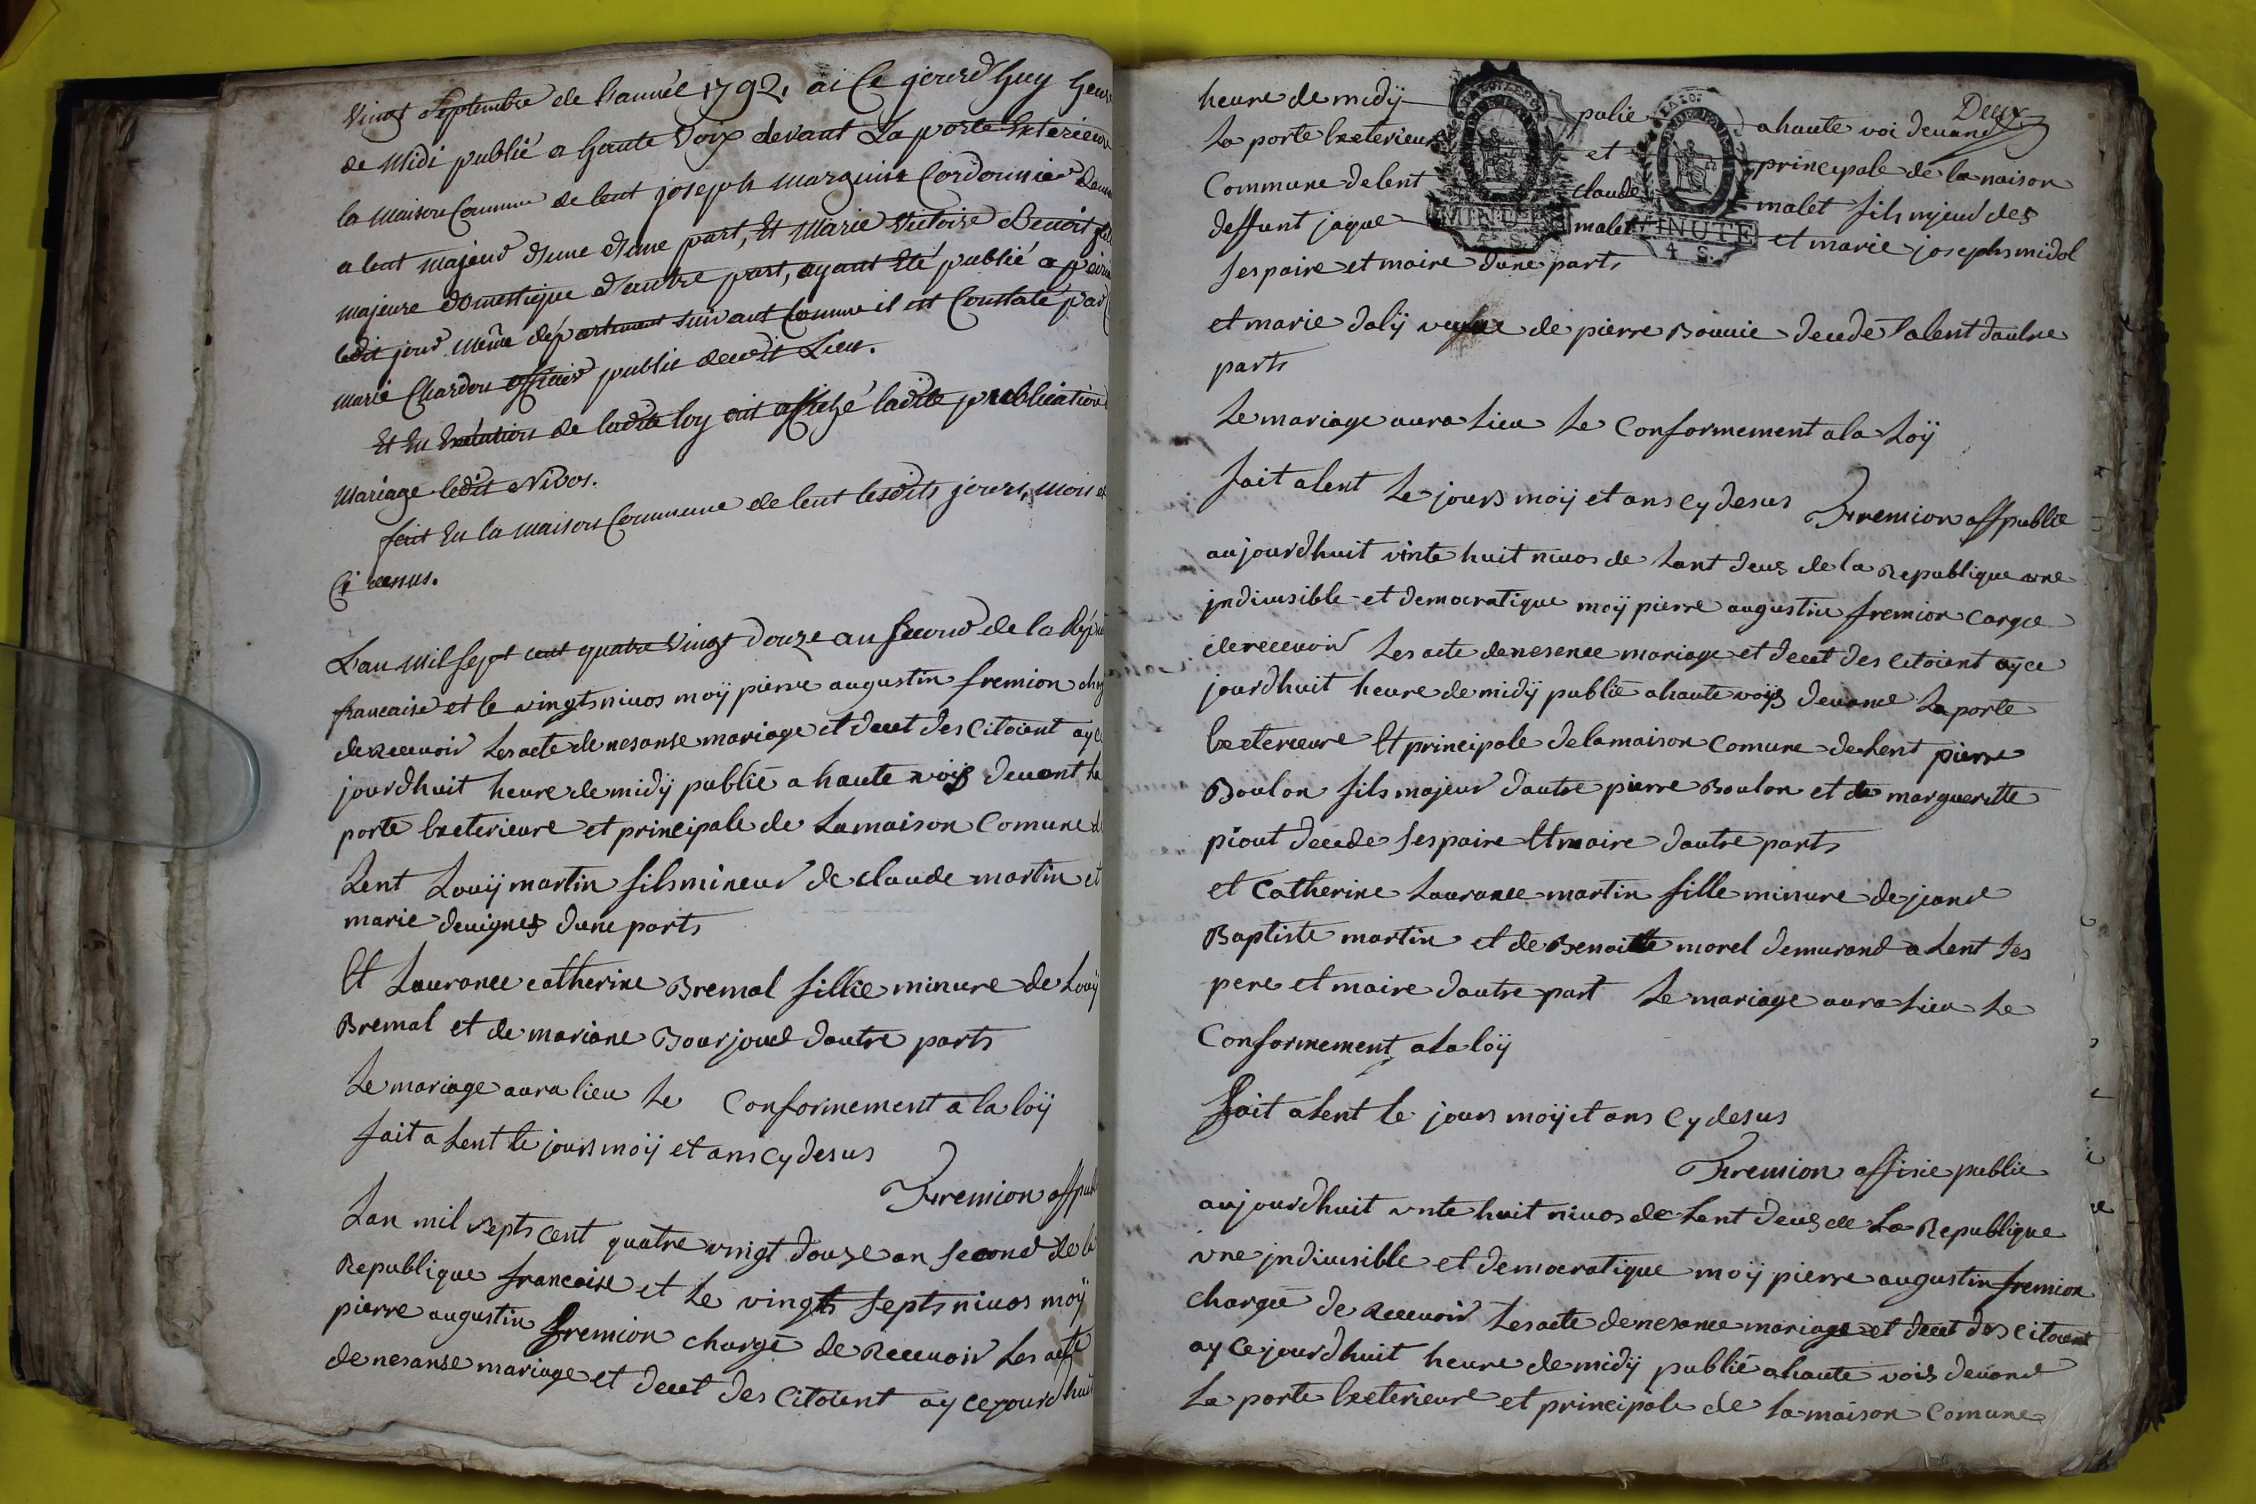 Vingt Septembre de L'année 1792, ai Ce jourd'huy heure
de Midi publié a haute Voix devant La porte Exterieure
la Maison Commune de lent joseph Marguin Cordonnier
a lent majeur d'une d'une part, Et Marie Victoire Benoit
majeure domestique d'autre part, ayant Eté publié a
ledit jour même département suivant Comme il est Constaté par
marie Chardon officier public dudit Lieu.
Et En Exécution de ladite loy ait affiché ladite publication
Mariage ledit Nivos.
fait En la Maison Commune de lent lesdits jours, Mois et
Ci dessus.
L'an mil sept cent quatre Vingt Douze an second de la
francaise et le vingts nivos moÿ pierre augustin fremion
de Recevoir Les acte de nesanse mariage et decet des Citoient ay ce
jourdhuit heure de midÿ publié a haute voÿs devant la
porte Exterieure et principale de La maison Comune de
Lent Louÿ martin fils mineur de claude martin et
marie devignes dune parts
Et Laurance catherine Bremal fillie minure de Louÿ
Bremal et de mariane Bourjoud dautre parts
Le mariage aura lieu Le Conformement a la loÿ
fait a Lent le jours moÿ et ans cy desus
Fremion off
Lan mil septs cent quatre vingt douze an second de la
Republique francaise et Le vingts septs nivos moÿ
pierre augustin fremion chargé de Recevoir Les acte
de nesanse mariage et decet des Citoient ay ce jourdhuit
Deux
heure de midÿ publie a haute voi devand
La porte Exterieur et principale de la maison
Commune de lent claude malet fils mjeur des
deffunt jaque malet et marie josephs midol
ses paire et maire dune parts
MINUTE
4 S.
MINUTE
4 S.
et marie dalÿ veufve de pierre Bouvie decede a lent daulre
parts
Le mariage aura Lieu Le Conformement a la Loÿ
fait a lent Le jours moÿ et ans cy desus Fremion off publie
aujourdhuit vinte huit nivos de Lant deus de la Republique une
jndivisible et democratique moÿ pierre augustin fremion cargce
de recevoir Les acte de nesence mariage et decet des Citoient ay ce
jourdhuit heure de midÿ publié a haute voÿs devance La porte
Exterieure Et principale de la maison comune de Lent pierre
Boulon fils majeur dautre pierre Boulon et de marguerette
piout decede ses paire Et maire dautre parts
et Catherine Laurance martin fille minure de jeand
Baptiste martin et de Benoitte morel demurand a Lent ses
pere et maire dautre part Le mariage aura Lieu Le
Conformement a La loÿ
fait a Lent le jours moÿ et ans cy desus
Fremion offisie publie
aujourdhuit vnte huit nivos de Lent deus de La Republique
vne jndivisible et democratique moÿ pierre augustin fremion
chargée de Recevoir Les acte de nesance mariage et decet des citoient
ay ce jourdhuit heure de midÿ publié a haute vois devand
La porte Exterieure et principale de la maison comune